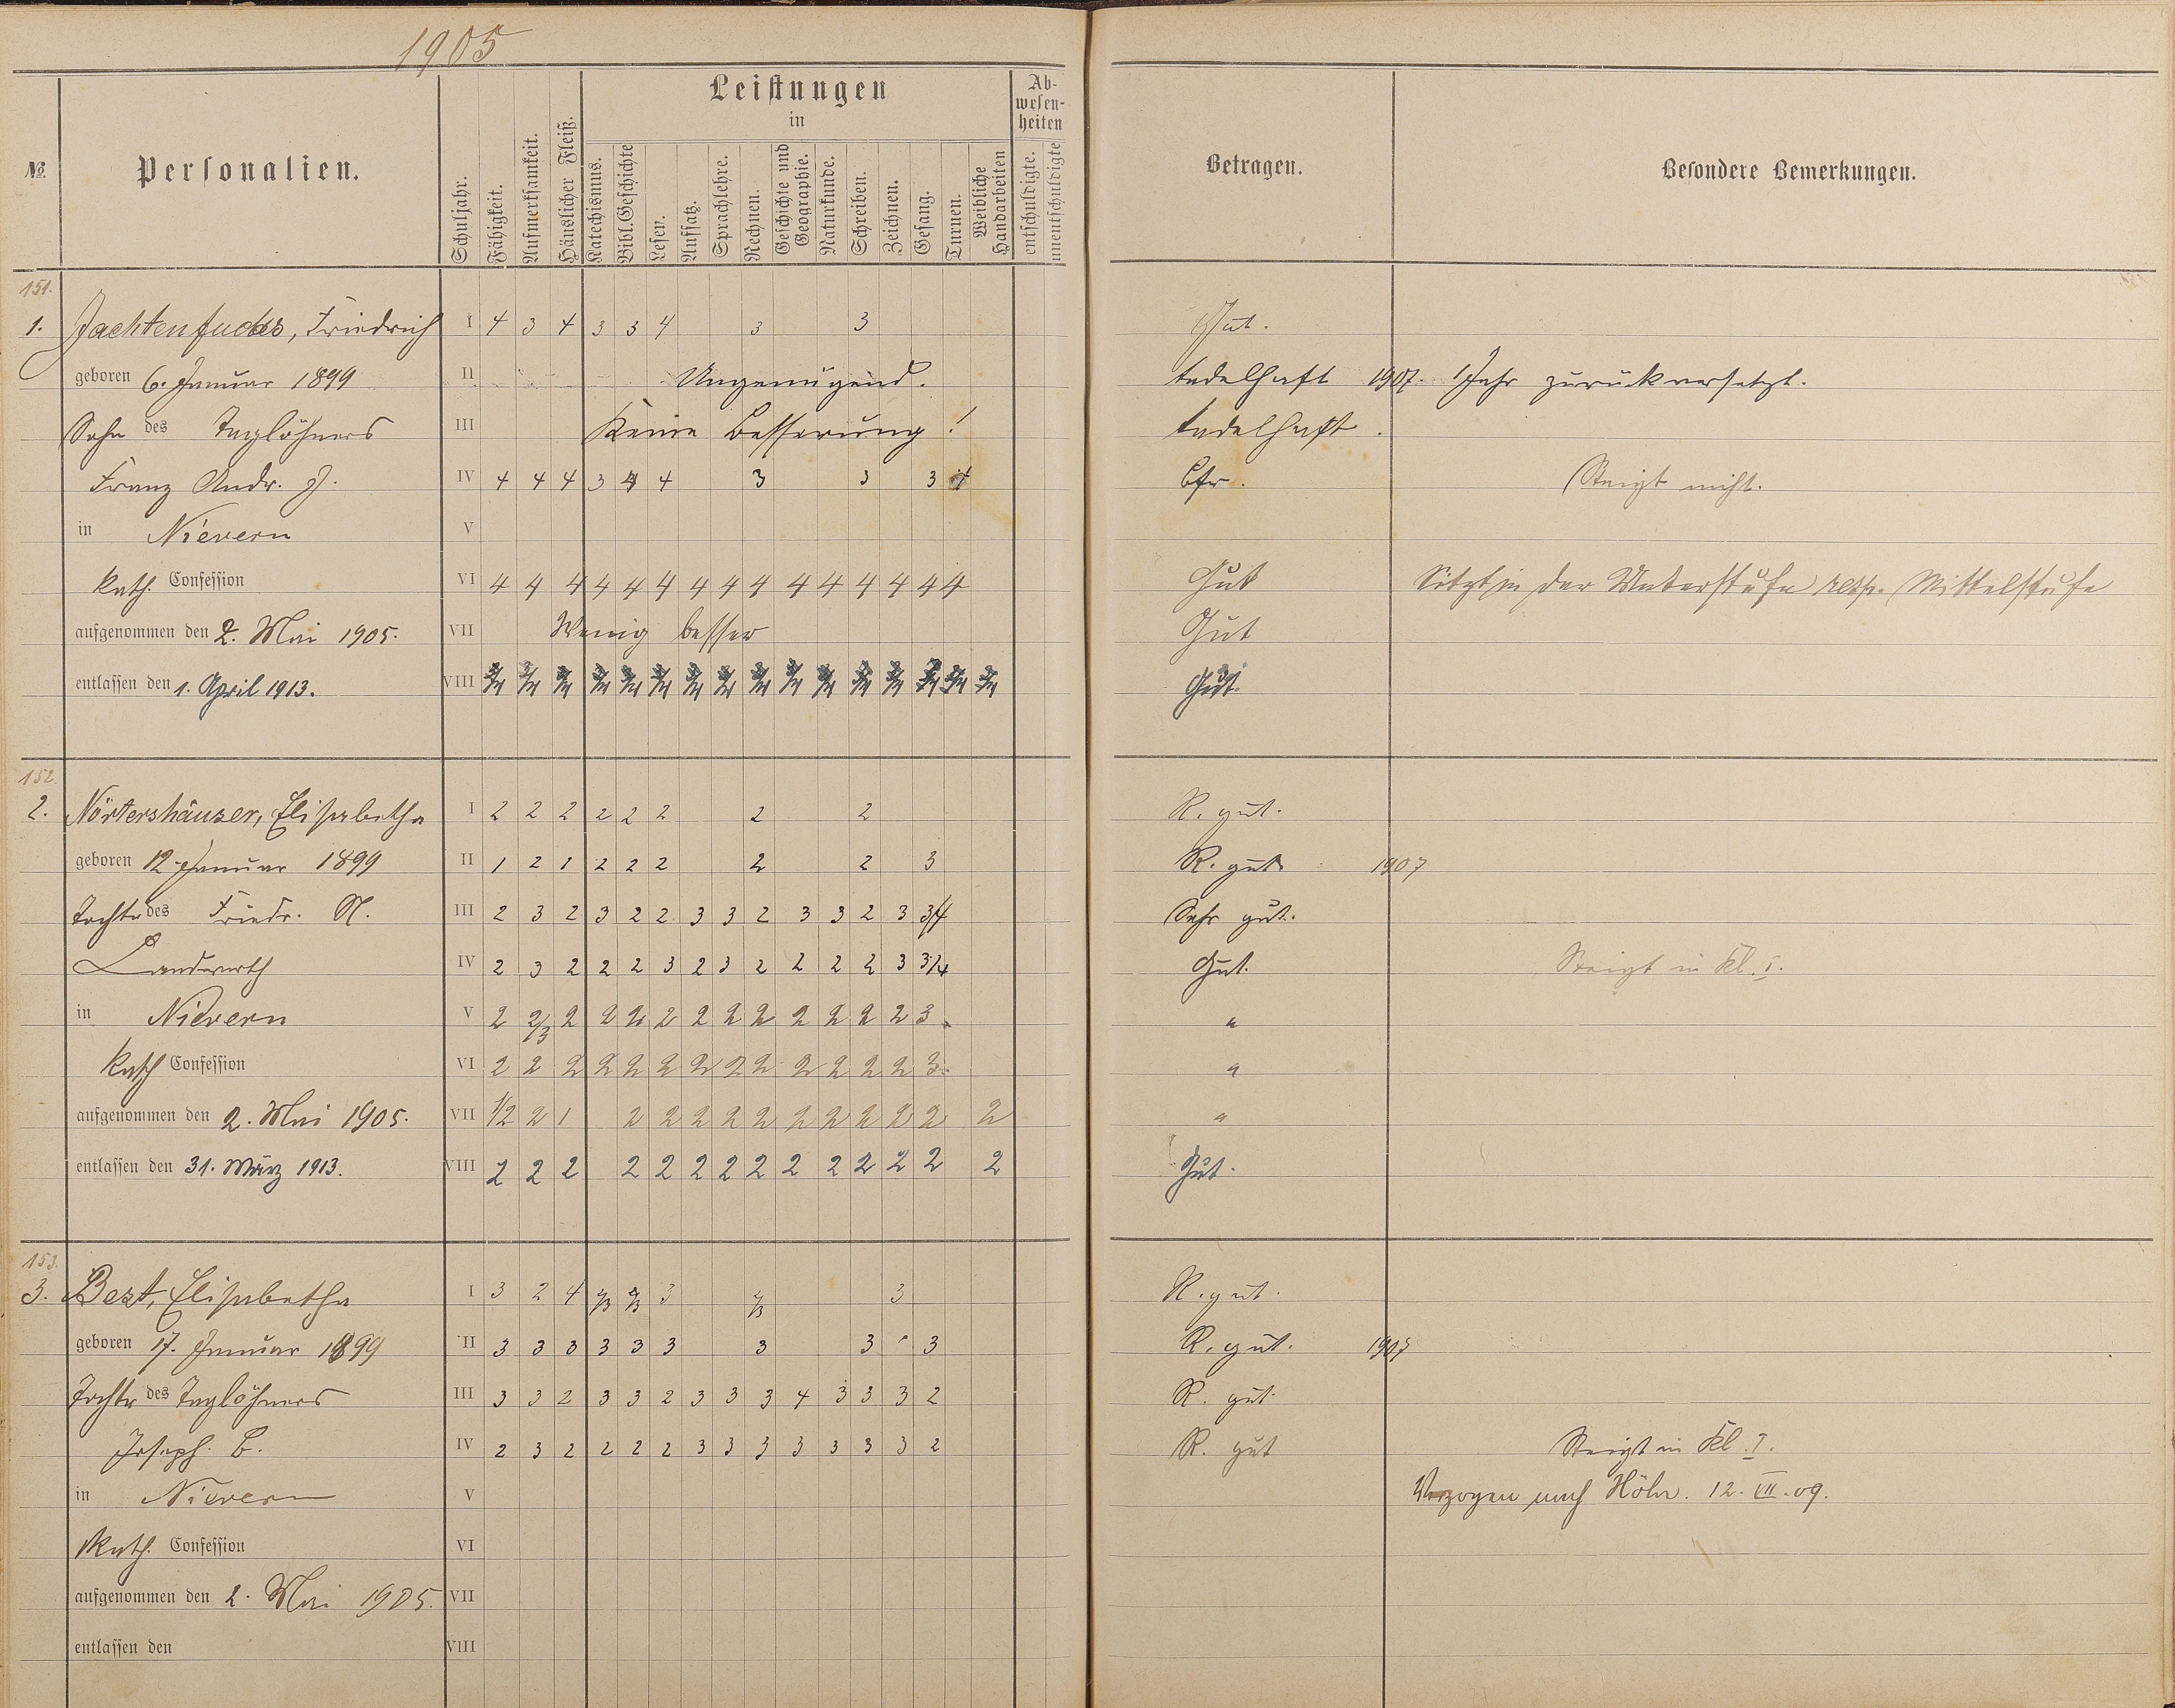 1905
№.
Personalien.
Schuljahr.
Fähigkeit.
Aufmerksamkeit.
Häuslicher Fleiß.
Leistungen
in
Katechismus.
Bibl. Geschichte
Lesen.
Aufsatz.
Sprachlehre.
Rechnen.
Geschichte und
Geographie.
Naturkunde.
Schreiben.
Zeichnen.
Gesang.
Turnen.
Weibliche
Handarbeiten
Ab-
wesen-
heiten
entschuldigte.
unentschuldigte
Betragen.
Besondere Bemerkungen.
151.
1. Jachtenfuchs, Friedrich I 4 3 4 3 3 4 3 3 Gut.
geboren 6. Januar 1899 II Ungenügend. tadelhaft 1907. 1 Jahr zurückversetzt.
Sohn des Taglöhners III Keine Besserung! tadelhaft.
Franz Andr. J. IV 4 4 4 3 4 4 3 3 3 4 Steigt nicht.
in Nievern V
kath. Confession VI 4 4 4 4 4 4 4 4 4 4 4 4 4 4 4 Gut Sitzt in der Unterstufe resp. Mittelstufe
aufgenommen den 2. Mai 1905. VII Wenig besser Gut
entlassen den 1. April 1913. VIII 3/4 3/4 3/4 3/4 3/4 3/4 3/4 3/4 3/4 3/4 3/4 3/4 3/4 3/4 3/4 3/4 Gut.
152.
2. Nörtershäuser, Elisabetha I 2 2 2 2 2 2 2 2 R. gut.
geboren 12. Januar 1899 II 1 2 1 2 2 2 2 2 3 R. gut. 1907
Tochter des Friedr. N. III 2 3 2 3 2 2 3 3 2 3 3 2 3 3/4 Sehr gut.
Landwirth IV 2 3 2 2 2 3 2 3 2 2 2 2 3 3/4 Gut. Steigt in Kl. I.
in Nievern V 2 2/3 2 2 2 2 2 2 2 2 2 2 2 3 "
kath Confession VI 2 2 2 2 2 2 2 2 2 2 2 2 2 3 "
aufgenommen den 2. Mai 1905. VII 1/2 2 1 2 2 2 2 2 2 2 2 2 2 2 "
entlassen den 31. März 1913. VIII 2 2 2 2 2 2 2 2 2 2 2 2 2 2 Gut.
153.
3. Best, Elisabetha I 3 2 4 2/3 2/3 3 2/3 3 R. gut.
geboren 17. Januar 1899 II 3 3 3 3 3 3 3 3 3 R. gut. 1907
Tochter des Taglöhners III 3 3 2 3 3 2 3 3 3 4 3 3 3 2 R. gut.
Joseph B. IV 2 3 2 2 2 2 3 3 3 3 3 3 3 2 R. gut Steigt in Kl. I.
in Nievern V Verzogen nach Höhr. 12. VII. 09.
Kath. Confession VI
aufgenommen den 2. Mai 1905. VII
entlassen den VIII